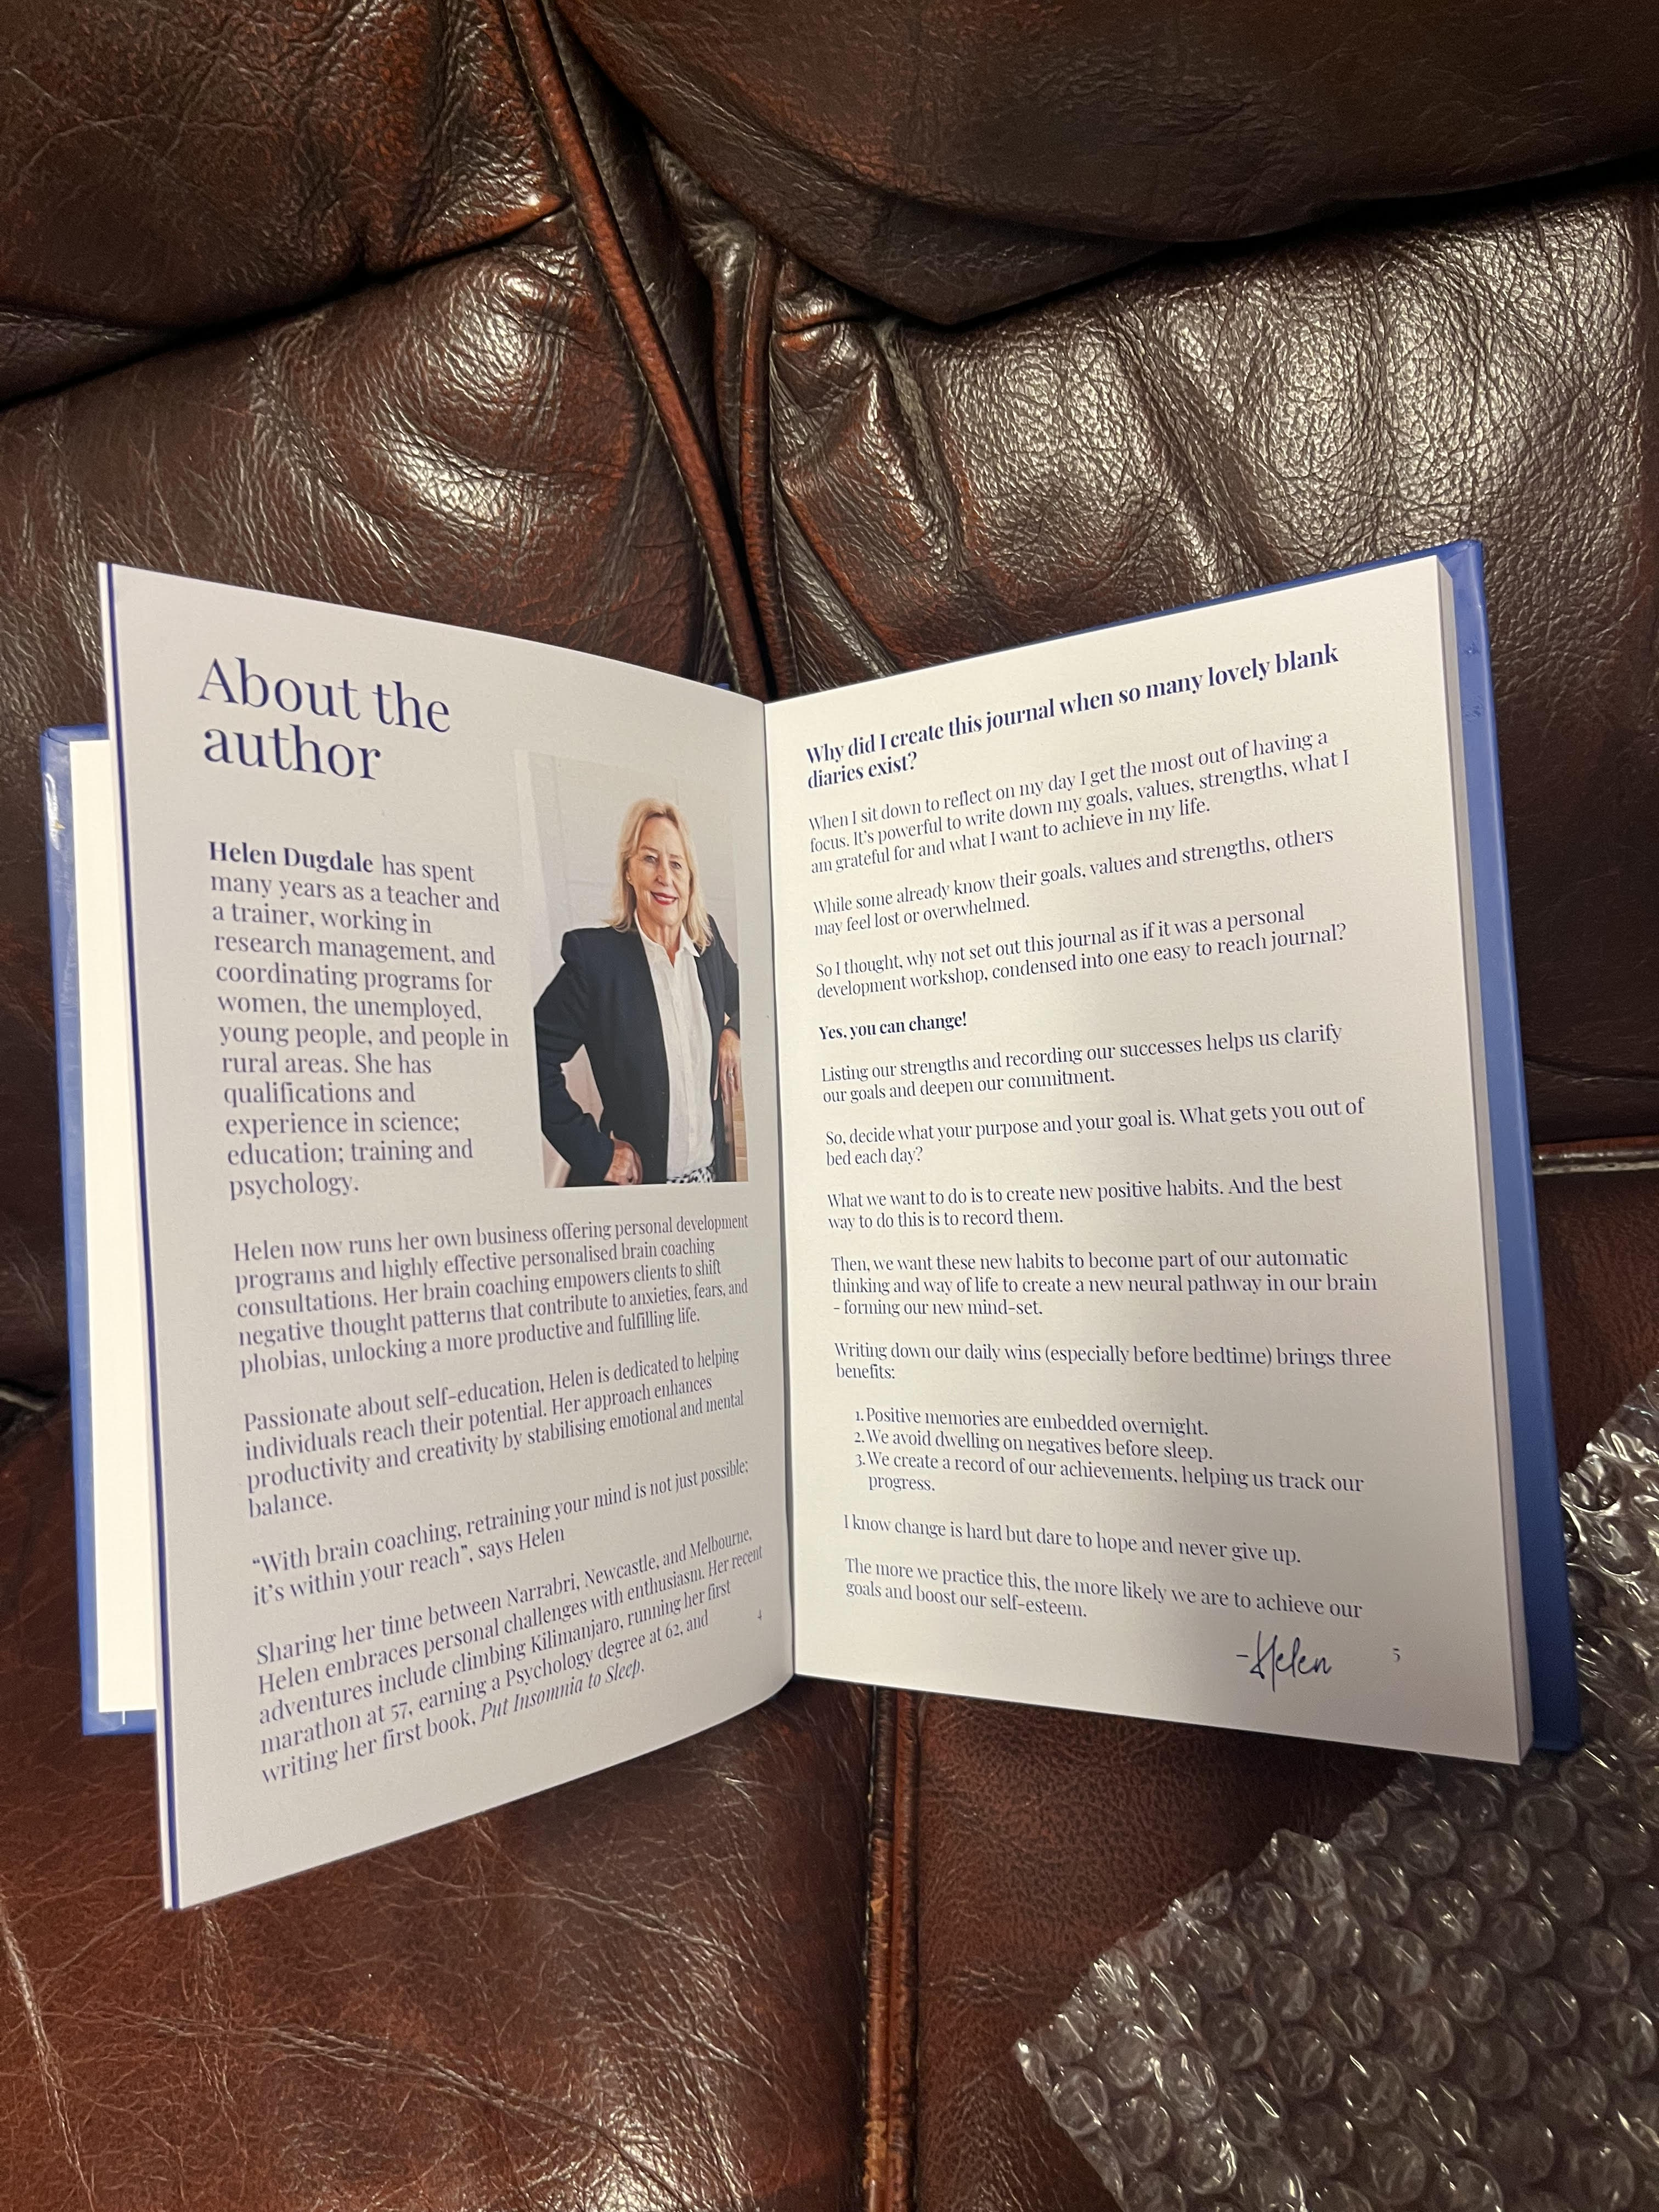 About the
author
Helen Dugdale has spent
many years as a teacher and
a trainer, working in
research management, and
coordinating programs for
women, the unemployed,
young people, and people in
rural areas. She has
qualifications and
experience in science;
education; training and
psychology.
Helen now runs her own business offering personal development
programs and highly effective personalised brain coaching
consultations. Her brain coaching empowers clients to shift
negative thought patterns that contribute to anxieties, fears, and
phobias, unlocking a more productive and fulfilling life.
Passionate about self-education, Helen is dedicated to helping
individuals reach their potential. Her approach enhances
productivity and creativity by stabilising emotional and mental
balance.
“With brain coaching, retraining your mind is not just possible;
it's within your reach”, says Helen
Sharing her time between Narrabri, Newcastle, and Melbourne,
Helen embraces personal challenges with enthusiasm. Her recent
adventures include climbing Kilimanjaro, running her first
marathon at 57, earning a Psychology degree at 62, and
writing her first book, Put Insomnia to Sleep.
4
Why did I create this journal when so many lovely blank
diaries exist?
When I sit down to reflect on my day I get the most out of having a
focus. It's powerful to write down my goals, values, strengths, what I
am grateful for and what I want to achieve in my life.
While some already know their goals, values and strengths, others
may feel lost or overwhelmed.
So I thought, why not set out this journal as if it was a personal
development workshop, condensed into one easy to reach journal?
Yes, you can change!
Listing our strengths and recording our successes helps us clarify
our goals and deepen our commitment.
So, decide what your purpose and your goal is. What gets you out of
bed each day?
What we want to do is to create new positive habits. And the best
way to do this is to record them.
Then, we want these new habits to become part of our automatic
thinking and way of life to create a new neural pathway in our brain
- forming our new mind-set.
Writing down our daily wins (especially before bedtime) brings three
benefits:
1. Positive memories are embedded overnight.
2. We avoid dwelling on negatives before sleep.
3. We create a record of our achievements, helping us track our
progress.
I know change is hard but dare to hope and never give up.
The more we practice this, the more likely we are to achieve our
goals and boost our self-esteem.
-Helen
5